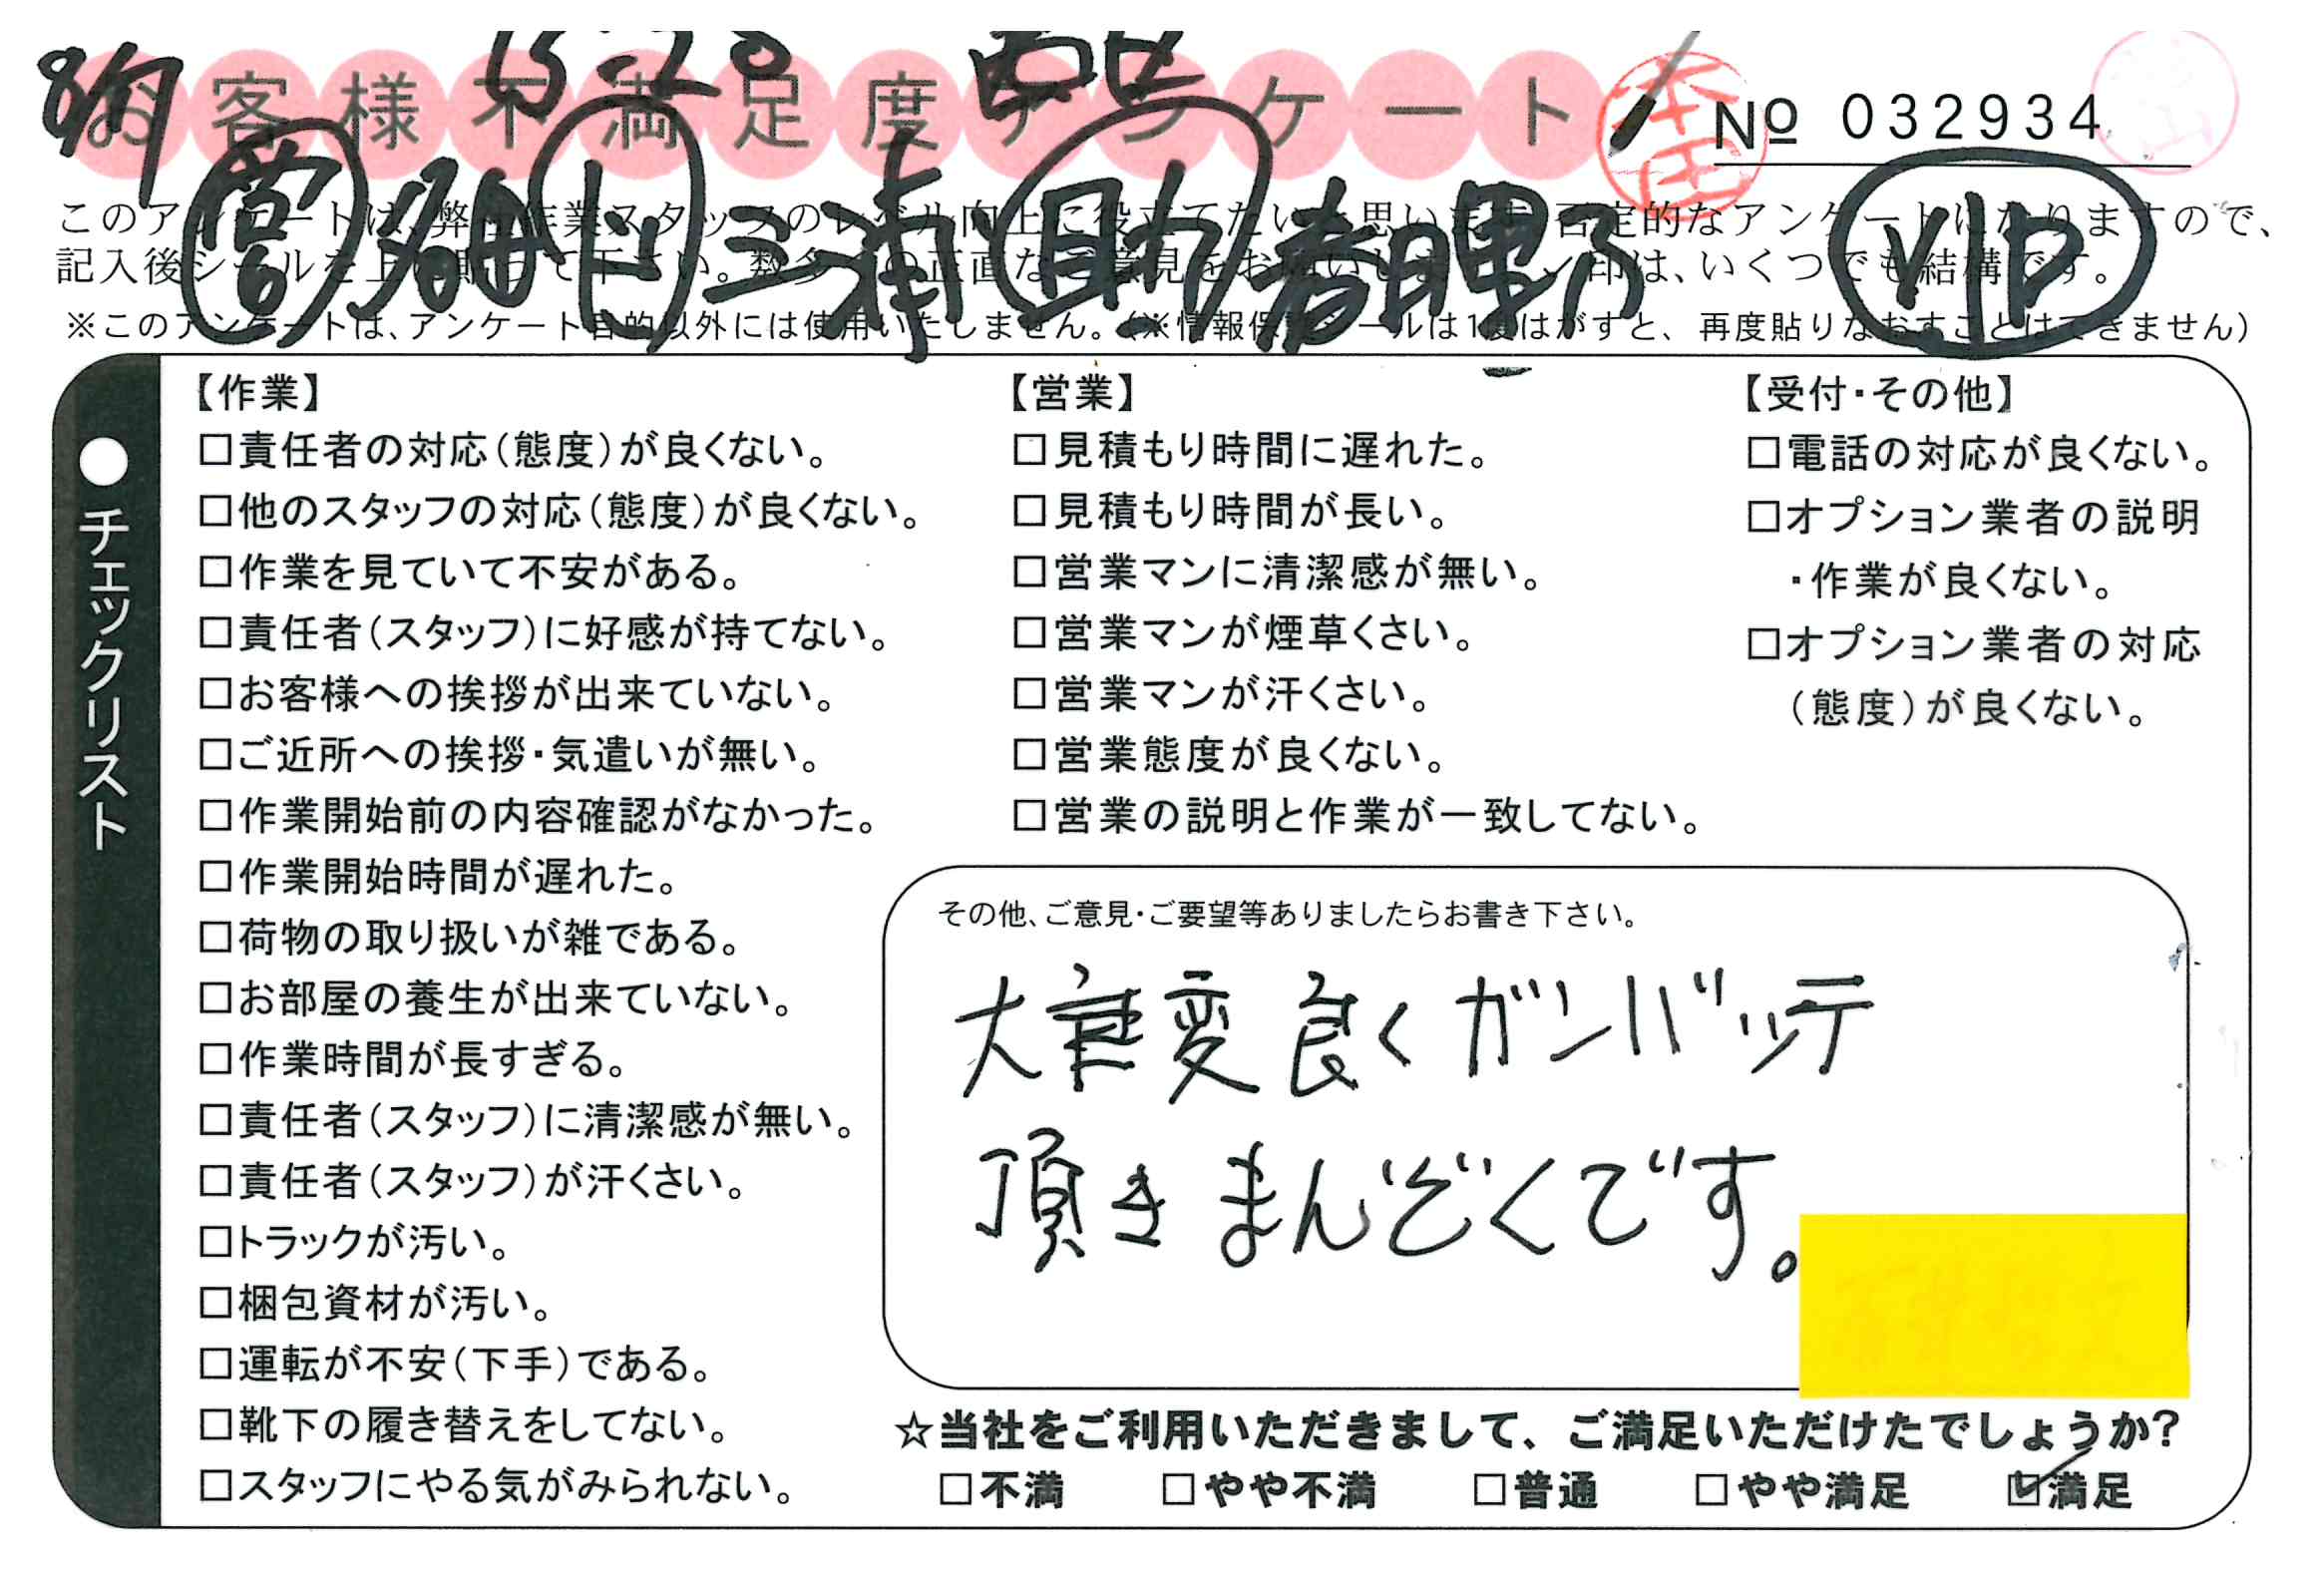 8/9 13-28
お客様不満足度アンケート
本田
No 032934
営 ト 三浦 助 春日 VIP
このアンケートは、弊社作業スタッフのレベル向上に役立てたいと思います。否定的なアンケートになりますので、
記入後シールを上に貼って下さい。数多くの正直なご意見をお願いします。チェック印は、いくつでも結構です。
※このアンケートは、アンケート目的以外には使用いたしません。(※情報保護シールは1度はがすと、再度貼りなおすことはできません)
●チェックリスト
【作業】
□責任者の対応(態度)が良くない。
□他のスタッフの対応(態度)が良くない。
□作業を見ていて不安がある。
□責任者(スタッフ)に好感が持てない。
□お客様への挨拶が出来ていない。
□ご近所への挨拶・気遣いが無い。
□作業開始前の内容確認がなかった。
□作業開始時間が遅れた。
□荷物の取り扱いが雑である。
□お部屋の養生が出来ていない。
□作業時間が長すぎる。
□責任者(スタッフ)に清潔感が無い。
□責任者(スタッフ)が汗くさい。
□トラックが汚い。
□梱包資材が汚い。
□運転が不安(下手)である。
□靴下の履き替えをしてない。
□スタッフにやる気がみられない。
【営業】
□見積もり時間に遅れた。
□見積もり時間が長い。
□営業マンに清潔感が無い。
□営業マンが煙草くさい。
□営業マンが汗くさい。
□営業態度が良くない。
□営業の説明と作業が一致してない。
【受付・その他】
□電話の対応が良くない。
□オプション業者の説明
・作業が良くない。
□オプション業者の対応
(態度)が良くない。
その他、ご意見・ご要望等ありましたらお書き下さい。
大変良くガンバッテ
頂きまんぞくです。
☆当社をご利用いただきまして、ご満足いただけたでしょうか?
□不満 □やや不満 □普通 □やや満足 ☑満足